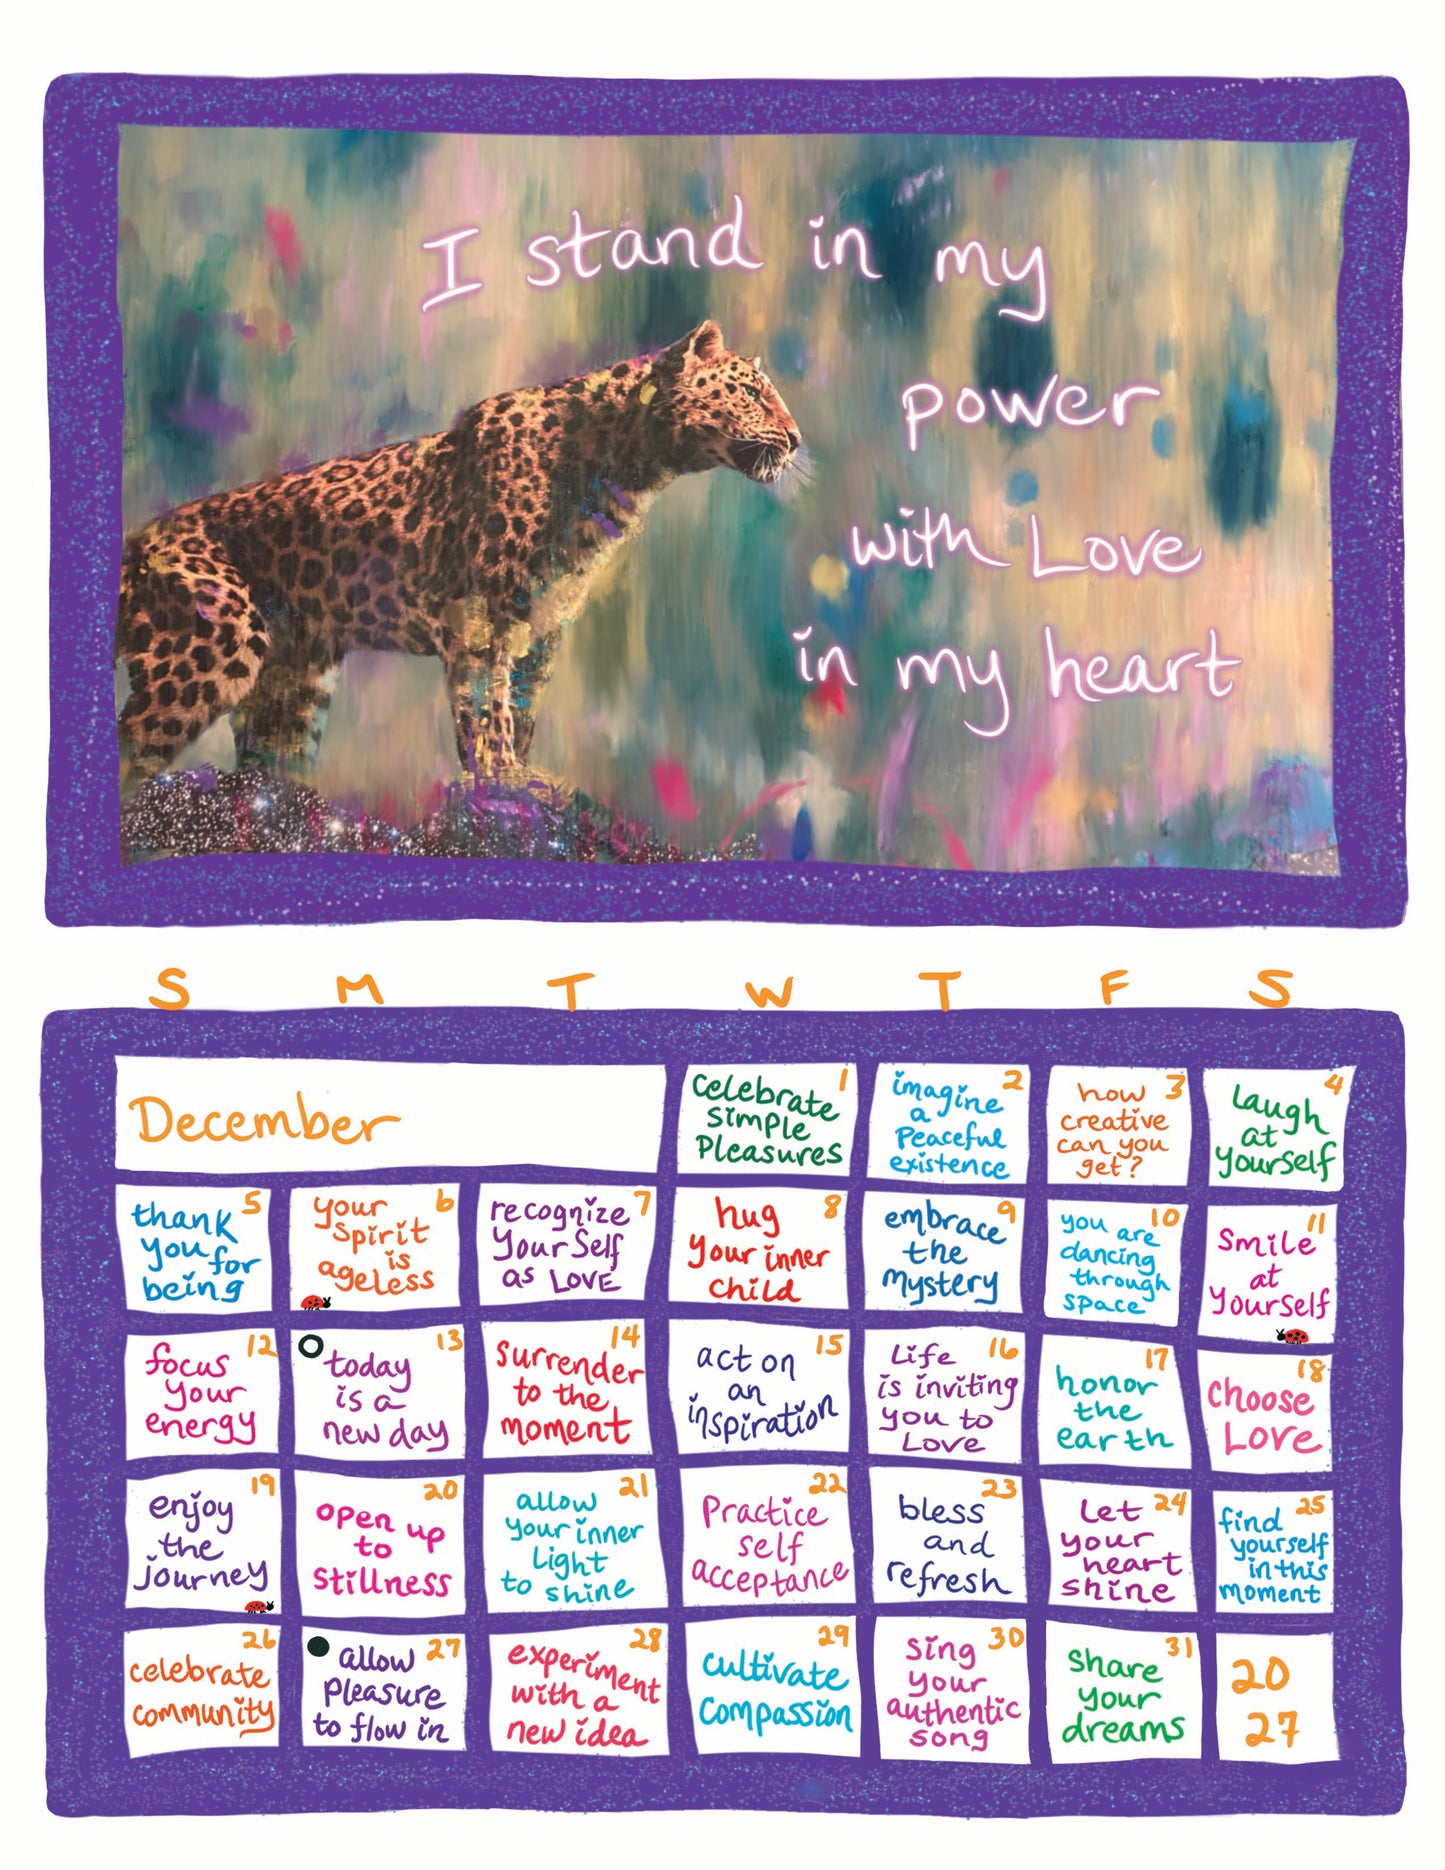 I stand in my
power
with Love
in my heart
S M T W T F S
December
1
celebrate
simple
Pleasures
2
imagine
a
Peaceful
existence
3
how
creative
can you
get?
4
Laugh
at
yourself
5
thank
you for
being
6
your
Spirit
is
ageless
7
recognize
YourSelf
as LOVE
8
hug
your inner
child
9
embrace
the
Mystery
10
you are
dancing
through
space
11
Smile
at
Yourself
12
focus
your
energy
13
today
is a
new day
14
Surrender
to the
moment
15
act on
an
inspiration
16
Life
is inviting
you to
Love
17
honor
the
earth
18
Choose
Love
19
enjoy
the
journey
20
open up
to
stillness
21
allow
your inner
Light
to shine
22
Practice
self
acceptance
23
bless
and
refresh
24
Let
your
heart
shine
25
find
yourself
in this
moment
26
celebrate
community
27
allow
Pleasure
to flow in
28
experiment
with a
new idea
29
cultivate
compassion
30
Sing
your
authentic
song
31
Share
your
dreams
20
27